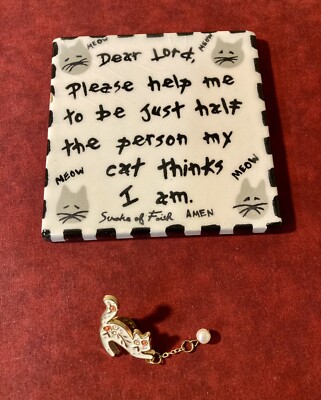 MEOW
MEOW
Dear Lord,
Please help me
to be just half
the person my
cat thinks
MEOW
MEOW
I am.
Strokes of Faith AMEN